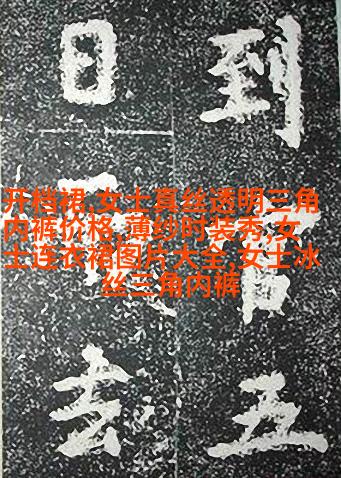 到五
日去
开档裙,女士真丝透明三角
内裤价格,薄纱时装秀,女
士连衣裙图片大全,女士冰
丝三角内裤